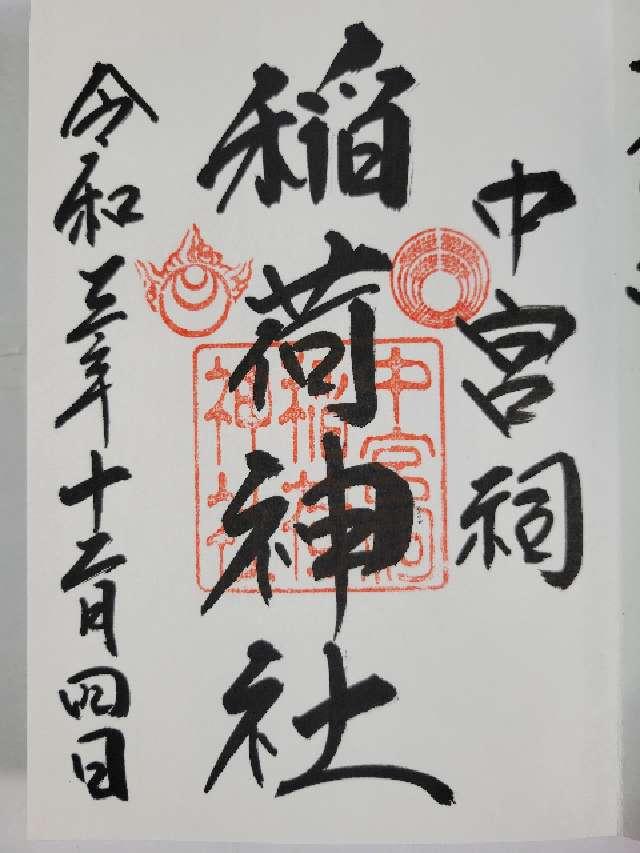 中宮祠
稲荷神社
令和三年十二月四日
中宮祠
稲荷
神社